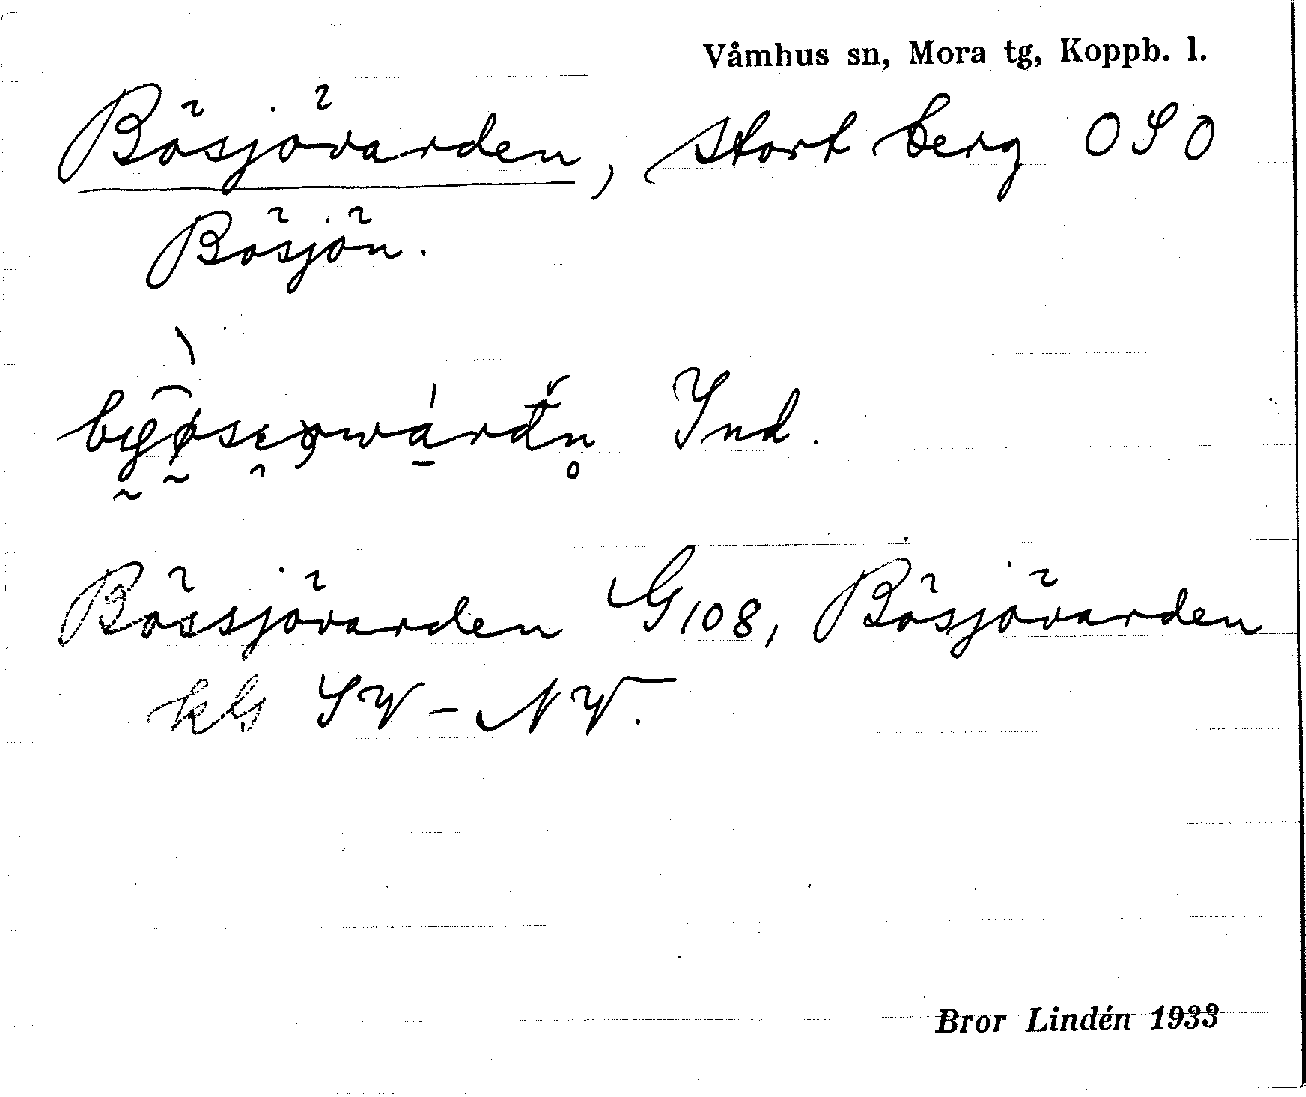 Våmhus sn, Mora tg, Koppb. l.
Bösjövarden, stort berg OSO
Bösjön.
Ind.
Bössjövarden G108, Bösjövarden
kG SV-NV.
Bror Lindén 1933